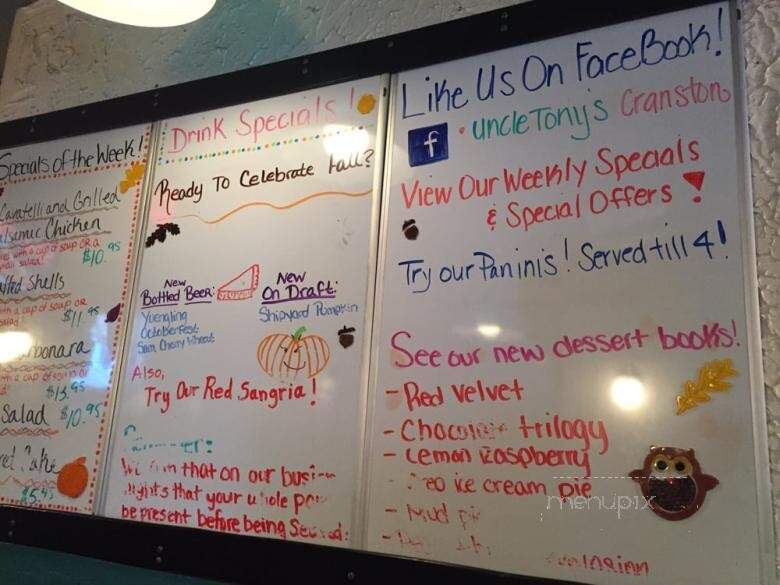 Specials of the Week!
Cavatelli and Grilled
Balsamic Chicken
with a cup of soup OR a
salad!
$10.95
Shells
with a cup of soup OR
$11.95
Carbonara
with a cup of soup or
$13.95
Salad $10.95
Cake
$5.45
Drink Specials!
Ready To Celebrate Fall?
New
Bottled Beer:
Yuengling
Octoberfest
Sam Cherry Wheat
New
On Draft:
Shipyard Pumpkin
Also,
Try Our Red Sangria!
that on our
nights that your whole
be present before being Seated:
Like Us On FaceBook!
f • uncle Tony's Cranston
View Our Weekly Specials
& Special Offers !
Try our Paninis! Served till 4!
See our new dessert books!
- Red Velvet
- Chocolate trilogy
- Lemon Raspberry
ice cream pie
- Mud pie
menupix